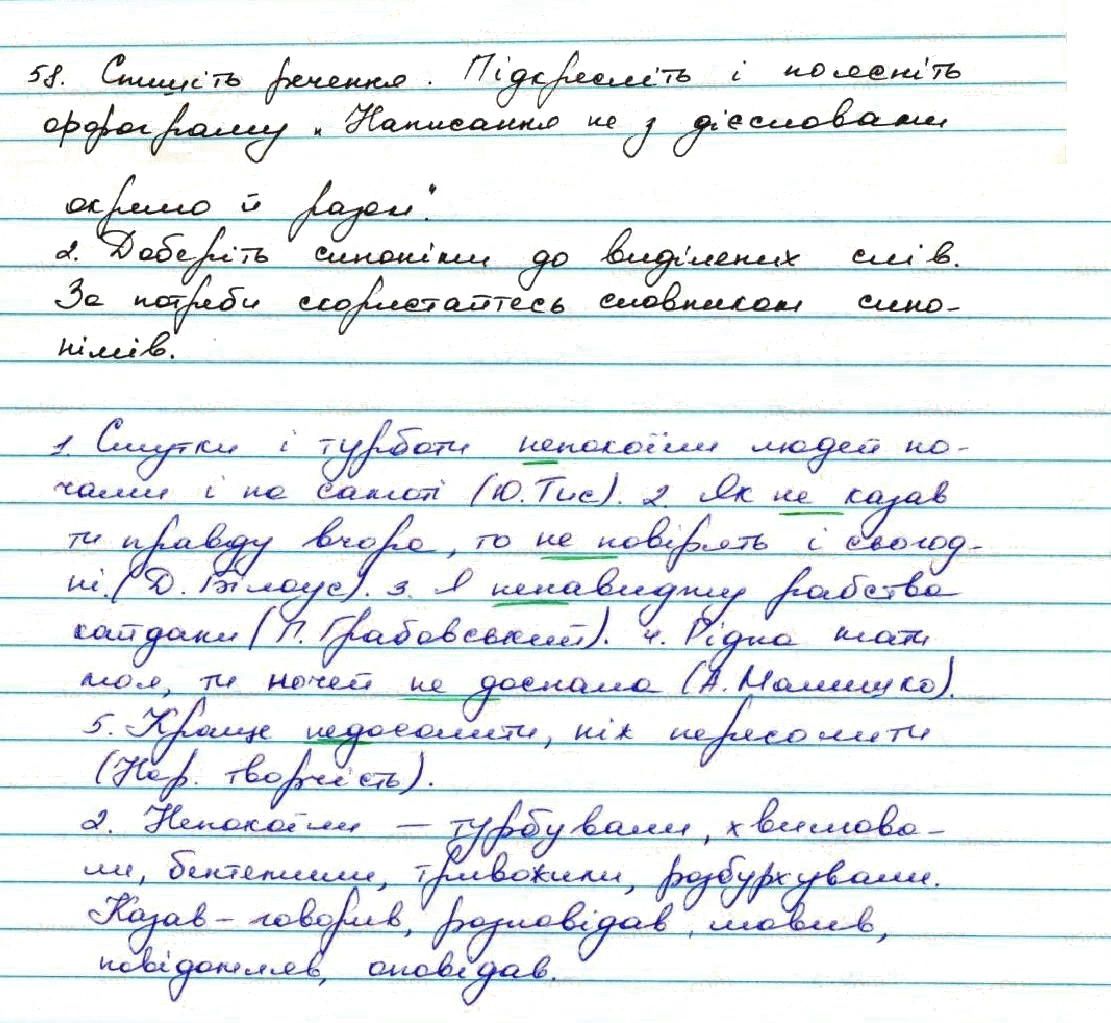 58. Спишіть речення. Підкресліть і поясніть
орфограму „Написання не з дієсловами
окремо й разом".
2. Доберіть синоніми до виділених слів.
За потреби скористайтесь словником сино-
німів.
1. Смутки і турботи непокоїли людей но-
чами і на самоті (Ю. Тис). 2. Як не казав
ти правду вчора, то не повірять і сьогод-
ні. (Д. Білоус). 3. Я ненавиджу рабства
кайдани (П. Грабовський). 4. Рідна мати
моя, ти ночей не доспала (А. Малишко).
5. Краще недосолити, ніж пересолити
(Нар. творчість).
2. Непокоїли – турбували, хвилюва-
ли, бентежили, тривожили, розбурхували.
Казав – говорив, розповідав, мовив,
повідомляв, оповідав.